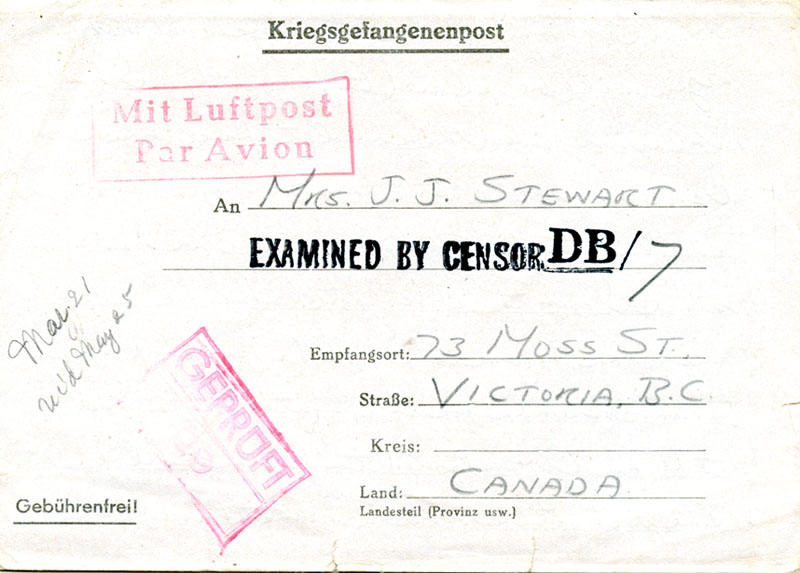 Kriegsgefangenenpost
Mit Luftpost
Par Avion
An Mrs. J. J. STEWART
EXAMINED BY CENSOR DB/7
Mar. 21
rec'd May 25
Empfangsort: 73 MOSS ST.,
Straße: VICTORIA, B.C.
Kreis:
Land: CANADA
Landesteil (Provinz usw.)
GEPRÜFT
29
Gebührenfrei!